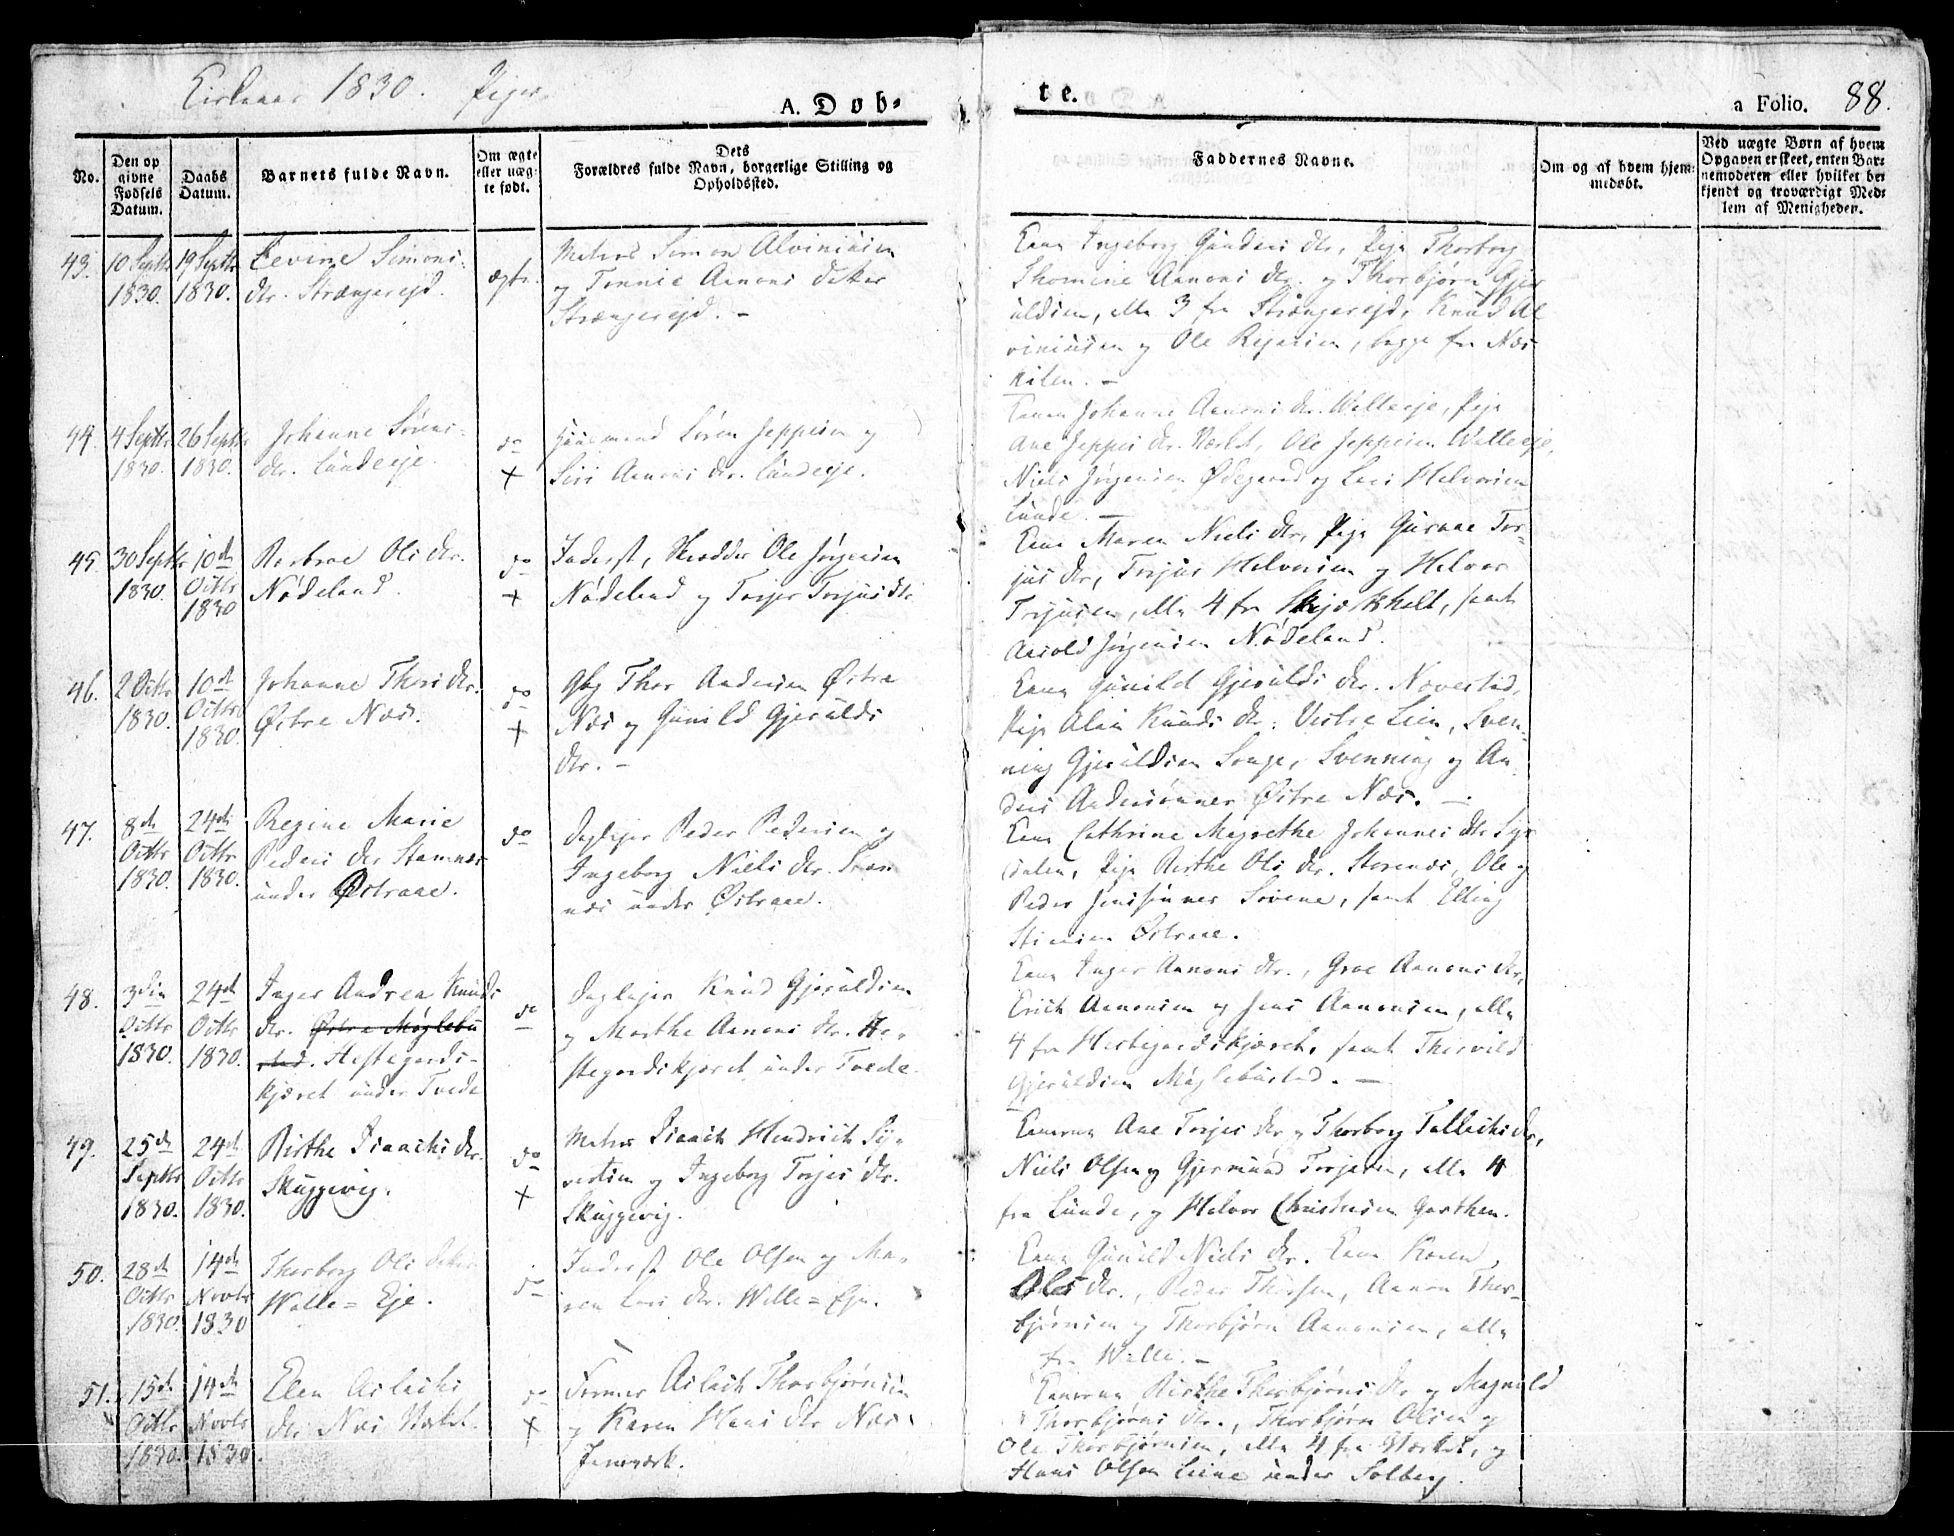 Kirkeaar 1830. Piger.
A. Døb-
te.
a Folio. 88.
No.
Den op
givne
Fødsels
Datum.
Daabs
Datum.
Barnets fulde Navn.
Om ægte
eller uæg-
te født.
Dets
Forældres fulde Navn, borgerlige Stilling og
Opholdssted.
Faddernes Navne.
Om og af hvem hjem-
medøbt.
Ved uægte Børn af hvem
Opgaven er skeet, enten Bar-
nemoderen eller hvilket be-
kjendt og troværdigt Med-
lem af Menigheden.
43.
10 Septbr
1830.
19 Septbr
1830.
Levine Simons
dtr. Strængereid.
ægte.
Matros Simon Alvinusen
og Tonnie Aanons datter
Strængereid. -
Ingeborg Gunders dtr, Pige Thorborg
Thomine Aanons dtr. og Thorbjørn Gjer
uldsen, alle 3 fra Strængereid, Knud Al
vinusen og Ole Rejersen, begge fra Næs
kilen. -
44.
4 Septbr
1830.
26 Septbr
1830.
Johanne Sørens-
dtr. Lundeeje.
do
+
Huusmand Søren Jeppesen og
Siri Aanons dtr. Lundeeje.
Johanne Aanons dtr. Walleeje, Pige
Ane Jeppes dtr. Ole Jeppesen Walleeje,
Niels Jørgensen Ødegaard og Lars Halvorsen
Lunde. -
45
30 Septbr
1830.
10de
Octbr
1830
Barbroe Ols dtr.
Nødeland.
do
+
Inderst, Skrædder Ole Jørgensen
Nødeland og Torjer Torjusdtr
Maren Niels dtr, Pige Guroae Tor-
jus dtr, Torjus Halvorsen og Halvor
Torjusen, alle 4 fra Skjærkholt, samt
Aasold Jørgensen Nødeland.
46.
2 Octbr
1830.
10de
Octbr
1830.
Johanne Thors dtr.
Østre Næs.
do
+
Gbr Thor Andersen Østre
Næs og Gunild Gjerulds
dtr. -
Gunild Gjerulds dtr. Navestad,
Pige Knuds dtr. Vestre Lien, Sven-
ning Gjeruldsen Songe, Svenning og An
ders Andersønner Østre Næs. -
47.
8de
Octbr
1830.
24de
Octbr
1830.
Regine Marie
Peders dtr Stamnæs
under Østraae.
do
Daglejer Peder Pedersen og
Ingeborg Niels dtr. Stam
næs under Østraae.
Cathrine Magrethe Johannes dtr
dalen, Pige Birthe Ols dtr. Storenæs, Ole og
Peder Jenssønner Sivene, samt Elling
Østraae.
48.
3die
Octbr
1830.
24de
Octbr
1830.
Inger Andrea Knuds
dtr. Østre Møglebu
stad. Hestegards-
kjæret under Tvede
do
Daglejer Knud Gjeruldsen
og Marthe Aanons dtr. He-
stegardskjæret under Tvede
Inger Aanons dtr., Groe Aanons dtr,
Erich Aanonsen og Jens Aanonsen, alle
4 fra Hestegardskjæret, samt Thorvild
Gjeruldsen Møglebustad. -
49.
25de
Septbr
1830.
24de
Octbr
1830.
Birthe Diaachs dtr.
Skuggevig.
do
+
Matros Diaach Hendrich Sy-
vertsen og Ingeborg Torjes dtr.
Skuggevig.
Ane Torjes dtr og Thorborg Tallachs dtr,
Niels Olsen og Gjermund Torjesen, alle 4
fra Lunde, og Halvor Christensen Garthen.
50.
28de
Octbr
1830.
14de
Novbr
1830
Thorborg Ols datter
Walle=Eje.
do
Inderst Ole Olsen og Ma-
ren Lars dtr. Walle=Eje.
Gunild Niels dtr. Karen
Ols dtr., Peder Thorsen, Aanon Thor-
bjørnsen og Thorbjørn Aanonsen, alle
fra Walle. -
51.
15de
Octbr
1830.
14de
Novbr
1830.
Elen Aslachs
dtr. Næs Værket.
do
+
Former Aslach Thorbjørnsen
og Karen Hans dtr Næs
Jernværk.
Birthe Thorbjørns dtr og Magnild
Thorbjørns dtr., Thorbjørn Olsen og
Ole Thorbjørnsen, alle 4 fra Værket, og
Hans Olsen Liene under Solberg.